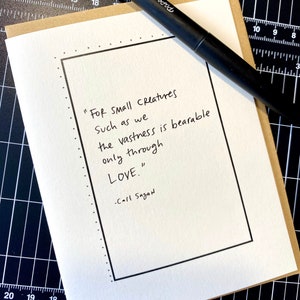 "FOR SMALL CREATURES
SUCH AS WE
THE VASTNESS IS BEARABLE
ONLY THROUGH
LOVE."
-Carl Sagan